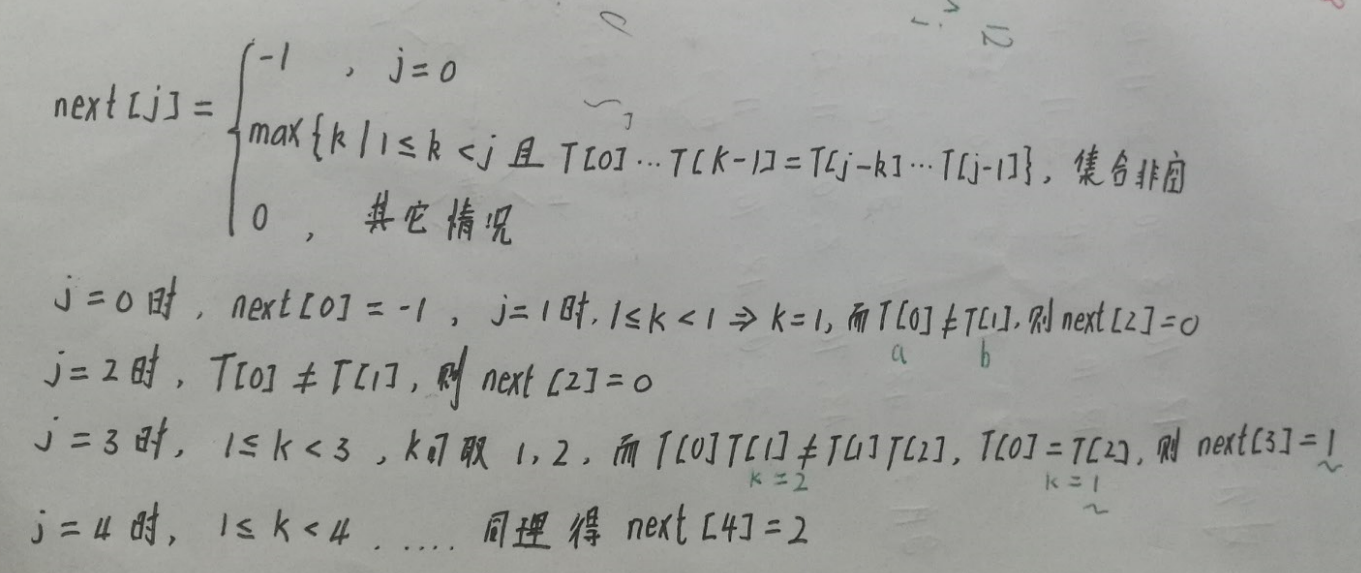 next[j] =
-1 , j=0
max{k|1≤k<j 且 T[0]…T[K-1]=T[j-k]…T[j-1]}, 集合非空
0 , 其它情况
j=0时, next[0]=-1, j=1时, 1≤k<1⇒k=1, 而T[0]≠T[1], 则next[2]=0
a b
j=2时, T[0]≠T[1], 则next[2]=0
j=3时, 1≤k<3, k可取1,2, 而T[0]T[1]≠T[1]T[2], T[0]=T[2], 则next[3]=1
k=2 k=1
j=4时, 1≤k<4 ..... 同理得next[4]=2